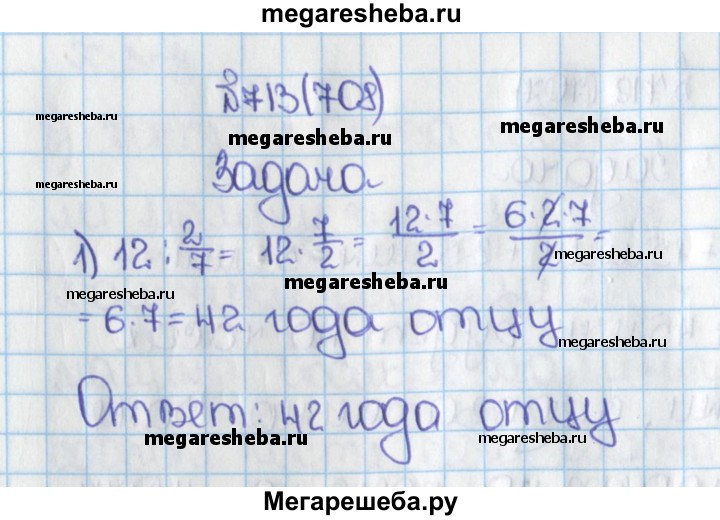 megaresheba.ru
№713(708)
megaresheba.ru
megaresheba.ru
megaresheba.ru
Задача
megaresheba.ru
1) 12 : 2/7 = 12 · 7/2 = 12·7/2 = 6·2·7/2 =
megaresheba.ru
megaresheba.ru
megaresheba.ru
= 6·7 = 42 года отцу
megaresheba.ru
Ответ: 42 года отцу
megaresheba.ru
megaresheba.ru
Мегарешеба.ру